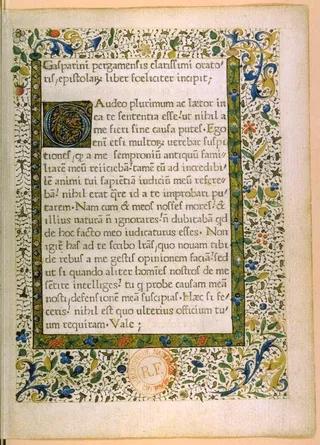 Gasparini pergamensis clarissimi orato-
ris, epistolaꝝ liber foeliciter incipit;
GAudeo plurimum ac lætor in
ea te sententia esse, ut nihil a
me fieri sine causa putes. Ego
eni etsi multoꝝ uerebar suspi
tiones, ꝙ a me semproniū antiquū fami
liarē meū reiiciebā: tamē cū ad incredibi
lē animi tui sapiētiā iudiciū meū referre
bā: nihil erat ꝗre id a te improbari pu
tarem. Nam cum & meos nosses mores: &
illius naturā ñ ignorares: ñ dubitabā qd
de hoc facto meo iudicaturus esses. Non
igiē has ad te scribo l̄ras, quo nouam tibi
de rebus a me gestis opinionem faciā: sed
ut si quando aliter homīes nostros de me
sētire intelliges: tu ꝗ probe causam meā
nosti, defensionē meā suscipias. Hæc si fe-
ceris: nihil est quo ulterius officium tu
um requiram. Vale;
R.F.